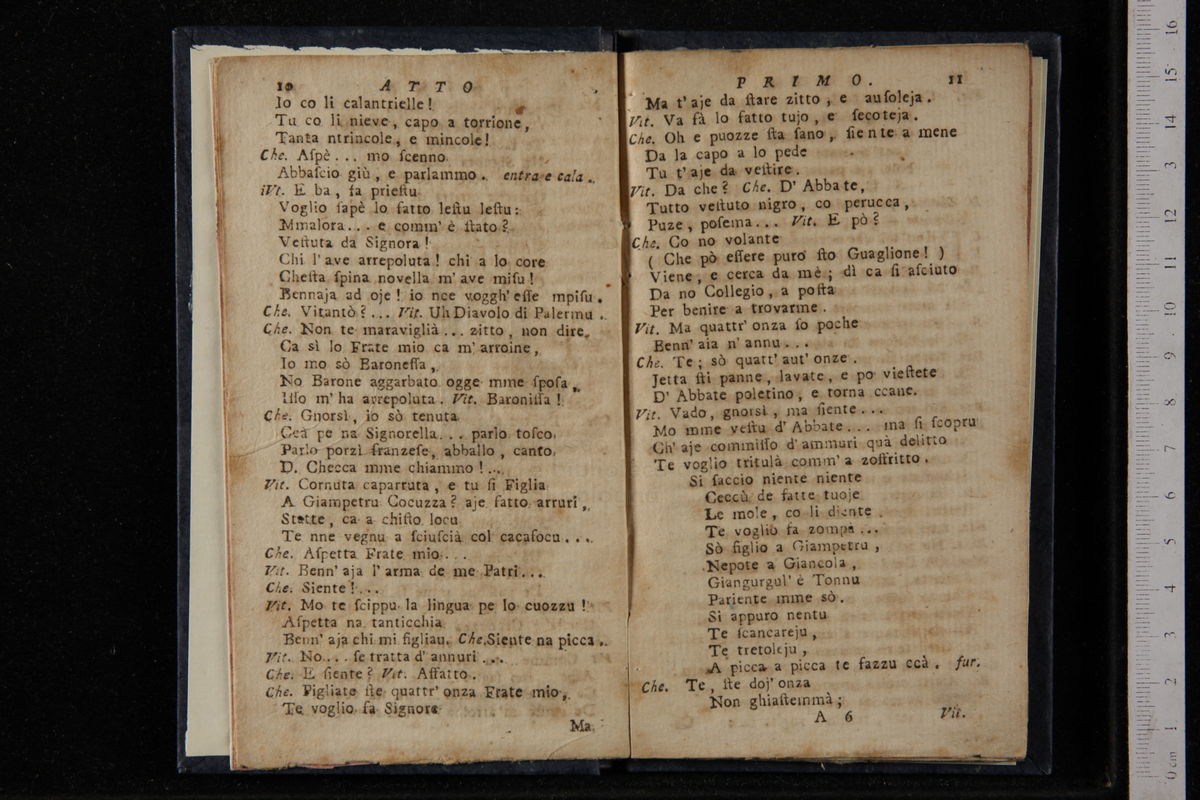 10 ATTO
Io co li calantrielle!
Tu co li nieve, capo a torrione,
Tanta ntrincole, e mincole!
Che. Aſpè... mo ſcenno
Abbaſcio giù, e parlammo. entra e cala.
iVt. E ba, fa prieſtu
Voglio ſapè lo fatto leſtu leſtu:
Mmalora... e comm' è ſtato?
Veſtuta da Signora!
Chi l'ave arrepoluta! chi a lo core
Cheſta ſpina novella m'ave miſu!
Bennaja ad oje! io nce voggh' eſſe mpiſu.
Che. Vitantò?... Vit. Uh Diavolo di Palermu.
Che. Non te maraviglià... zitto, non dire,
Ca sì lo Frate mio ca m'arroine,
Io mo sò Baroneſſa,
No Barone aggarbato ogge mme ſpoſa,
Iſſo m'ha arrepoluta. Vit. Baroniſſa!
Che. Gnorsì, io sò tenuta
Ccà pe na Signorella... parlo toſco,
Parlo porzì franzeſe, abballo, canto,
D. Checca mme chiammo!...
Vit. Cornuta caparruta, e tu ſi Figlia
A Giampetru Cocuzza? aje fatto arrurì,
Statte, ca a chiſto locu
Te nne vegnu a ſciuſcià col cacafocu....
Che. Aſpetta Frate mio...
Vit. Benn' aja l'arma de me Patri...
Che. Siente!...
Vit. Mo te ſcippu la lingua pe lo cuozzu!
Aſpetta na tanticchia
Benn' aja chi mi figliau. Che. Siente na picca.
Vit. No... ſe tratta d'annuri...
Che. E ſiente? Vit. Affatto.
Che. Pigliate ſte quattr' onza Frate mio,
Te voglio fa Signore
Ma
PRIMO. 11
Ma t'aje da ſtare zitto, e auſoleja.
Vit. Va fà lo fatto tujo, e ſecoteja.
Che. Oh e puozze ſta ſano, ſiente a mene
Da la capo a lo pede
Tu t'aje da veſtire.
Vit. Da che? Che. D'Abbate,
Tutto veſtuto nigro, co perucca,
Puze, poſema... Vit. E pò?
Che. Co no volante
( Che pò eſſere puro ſto Guaglione! )
Viene, e cerca da mè; dì ca ſi aſciuto
Da no Collegio, a poſta
Per benire a trovarme.
Vit. Ma quattr' onza ſo poche
Benn' aia n'annu...
Che. Te; sò quatt' aut' onze.
Jetta ſti panne, lavate, e po vieſtete
D'Abbate poletino, e torna ccane.
Vit. Vado, gnorsì, ma ſiente...
Mo mme veſtu d'Abbate... ma ſi ſcopru
Ch' aje commiſſo d'ammuri quà delitto
Te voglio tritulà comm' a zoffritto.
Si faccio niente niente
Ceccù de fatte tuoje
Le mole, co li diente
Te voglio fa zompa...
Sò figlio a Giampetru,
Nepote a Giancola,
Giangurgul' è Tonnu
Pariente mme sò.
Si appuro nentu
Te ſcancareju,
Te tretoleju,
A picca a picca te fazzu ccà. fur.
Che. Te, ſte doj' onza
Non ghiaſtemmà;
A 6 Vit.